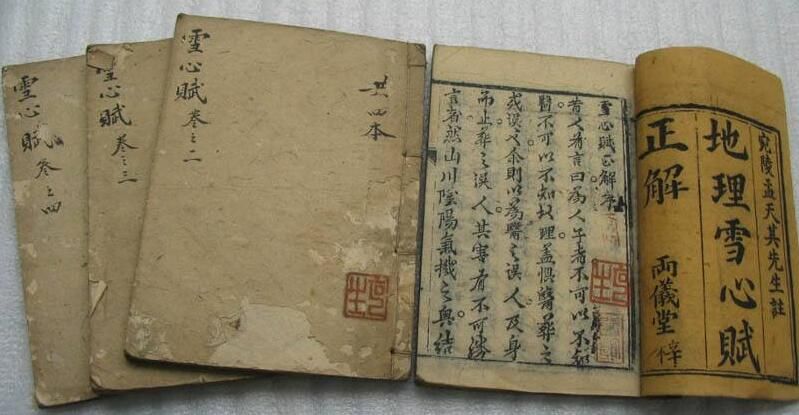 宛陵孟天其先生註
地理雪心賦
正解
兩儀堂梓
雪心賦正解序
昔人有言曰為人子者不可以不知
醫不可以不知地理盖懼醫葬之
或誤也余則以為醫之誤人及身
而止葬之誤人其害有不可勝
言者然山川陰陽氣機之奥結
共四本
雪心賦卷之二
雪心賦卷之三
雪心賦卷之四